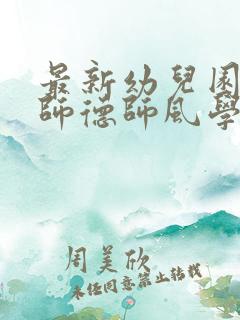 最新幼兒園
師德師風學
周美欣
未经同意禁止转载